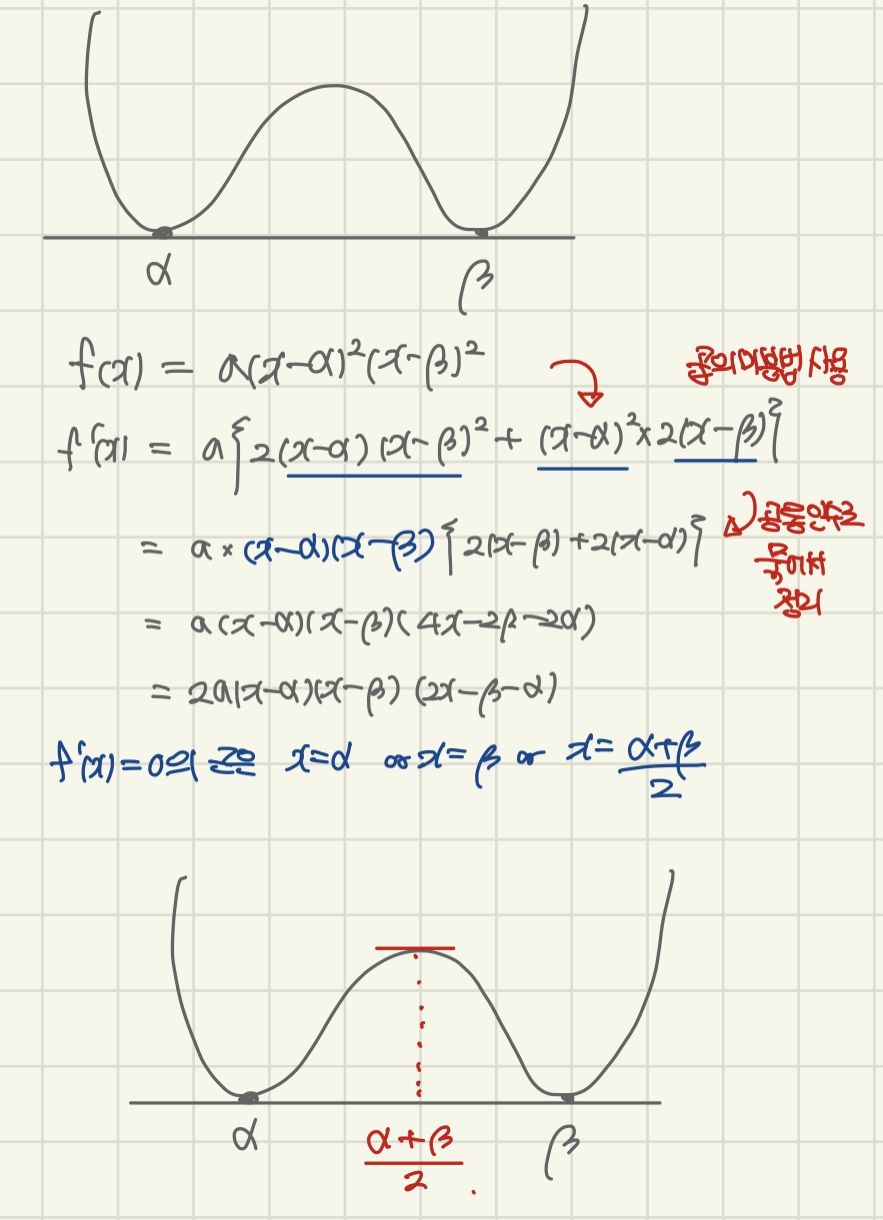 α β
f(x) = a(x-α)²(x-β)²
곱의미분법 사용
f'(x) = a{2(x-α)(x-β)² + (x-α)²×2(x-β)}
= a × (x-α)(x-β){2(x-β)+2(x-α)}
공통인수로
묶어서
정리
= a(x-α)(x-β)(4x-2β-2α)
= 2a(x-α)(x-β)(2x-β-α)
f'(x)=0의 근은 x=α or x=β or x=(α+β)/2
α (α+β)/2 β